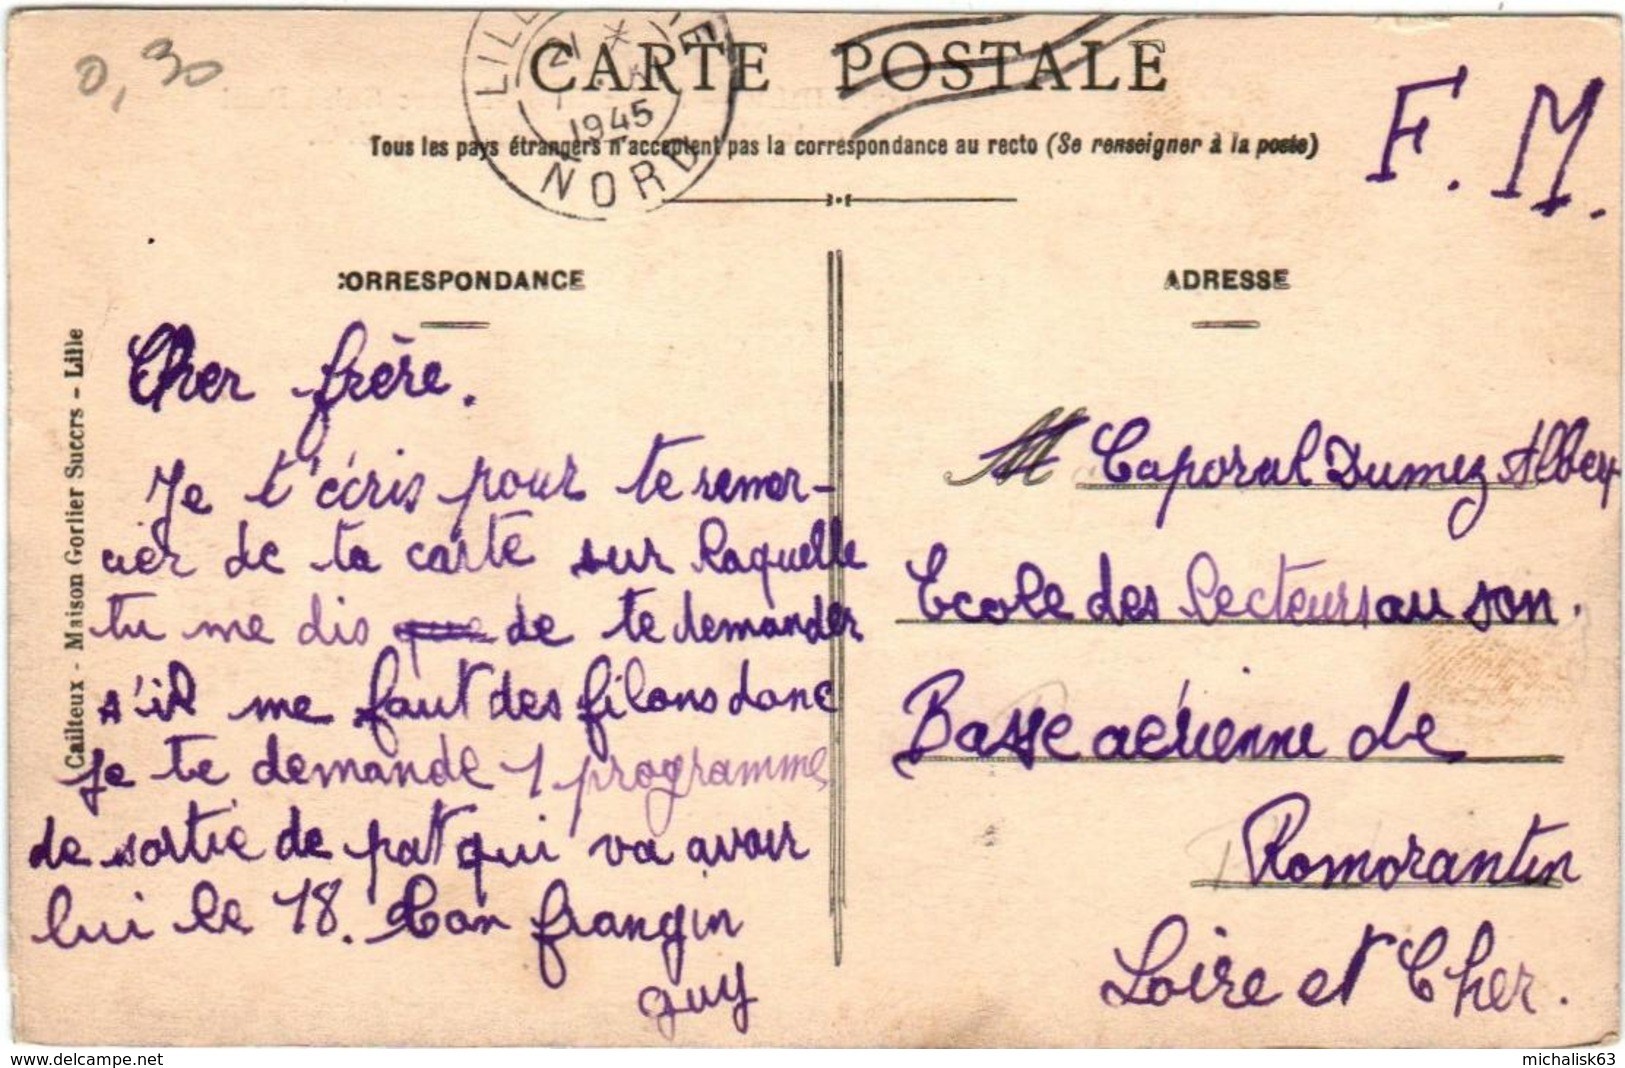 0,30
LILLE
21 *
1945
NORD
CARTE POSTALE
Tous les pays étrangers n'acceptent pas la correspondance au recto (Se renseigner à la poste)
F. M.
CORRESPONDANCE
ADRESSE
Cailteux - Maison Gorlier Succrs - Lille
Cher frère.
Je t'écris pour te remer-
cier de ta carte sur laquelle
tu me dis que de te demander
s'il me faut des filons donc
je te demande 1 programme
de sortie de pat qui va avoir
lui le 18. Ton frangin
guy
M Caporal Dumez Albert
Ecole des Lecteurs au son.
Basse aérienne de
Romorantin
Loire et Cher.
michalisk63
www.delcampe.net